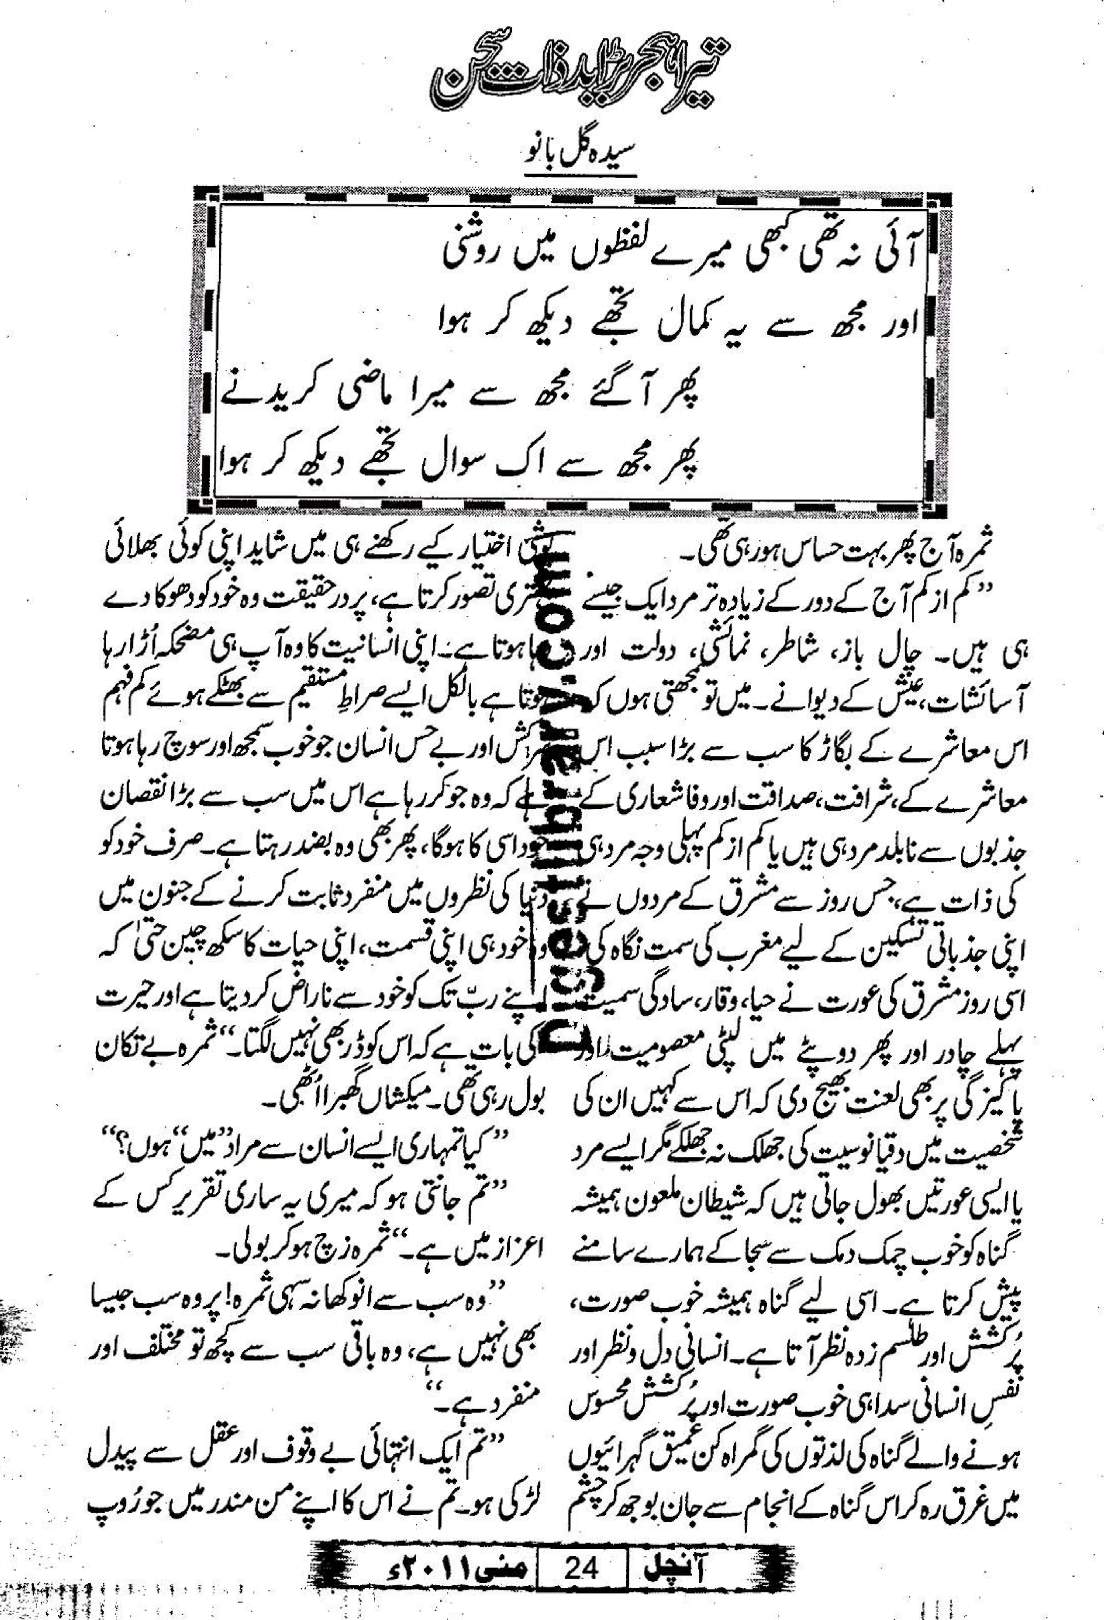 تیرا ہجر بڑا بد ذات سجن
سیدہ گل بانو
آئی نہ تھی کبھی میرے لفظوں میں روشنی
اور مجھ سے یہ کمال تجھے دیکھ کر ہوا
پھر آگئے مجھ سے میرا ماضی کریدنے
پھر مجھ سے اک سوال تجھے دیکھ کر ہوا
ثمرہ آج پھر بہت حساس ہورہی تھی۔
”کم از کم آج کے دور کے زیادہ تر مرد ایک جیسے
ہی ہیں۔ چال باز، شاطر، نمائشی، دولت اور
آسائشات، عیش کے دیوانے۔ میں تو سمجھتی ہوں کہ
اس معاشرے کے بگاڑ کا سب سے بڑا سبب اس
معاشرے کے، شرافت، صداقت اور وفا شعاری کے
جذبوں سے نابلد مرد ہی ہیں یا کم از کم پہلی وجہ مرد ہی
کی ذات ہے، جس روز سے مشرق کے مردوں نے
اپنی جذباتی تسکین کے لیے مغرب کی سمت نگاہ کی
اسی روز مشرق کی عورت نے حیا، وقار، سادگی سمیت
پہلے چادر اور پھر دوپٹے میں لپٹی معصومیت اور
پاکیزگی پر بھی لعنت بھیج دی کہ اس سے کہیں ان کی
شخصیت میں دقیانوسیت کی جھلک نہ جھلکے مگر ایسے مرد
یا ایسی عورتیں بھول جاتی ہیں کہ شیطان ملعون ہمیشہ
گناہ کو خوب چمک دمک سے سجا کے ہمارے سامنے
پیش کرتا ہے۔ اسی لیے گناہ ہمیشہ خوب صورت،
پُرکشش اور طلسم زدہ نظر آتا ہے۔ انسانی دل و نظر اور
نفسِ انسانی سدا ہی خوب صورت اور پُرکشش محسوس
ہونے والے گناہ کی لذتوں کی گمراہ کن عمیق گہرائیوں
میں غرق رہ کر اس گناہ کے انجام سے جان بوجھ کر چشم
پوشی اختیار کیے رکھنے ہی میں شاید اپنی کوئی بھلائی
بہتری تصور کرتا ہے، پر درحقیقت وہ خود کو دھوکا دے
رہا ہوتا ہے۔ اپنی انسانیت کا وہ آپ ہی مضحکہ اُڑا رہا
ہوتا ہے بالکل ایسے صراطِ مستقیم سے بھٹکے ہوئے کم فہم
سرکش اور بے حس انسان جو خوب سمجھ اور سوچ رہا ہوتا
ہے کہ وہ جو کررہا ہے اس میں سب سے بڑا نقصان
خود اسی کا ہوگا، پھر بھی وہ بضد رہتا ہے۔ صرف خود کو
دنیا کی نظروں میں منفرد ثابت کرنے کے جنون میں
وہ خود ہی اپنی قسمت، اپنی حیات کا سکھ چین حتیٰ کہ
اپنے ربّ تک کو خود سے ناراض کردیتا ہے اور حیرت
کی بات ہے کہ اس کو ڈر بھی نہیں لگتا۔“ ثمرہ بے تکان
بول رہی تھی۔ میکشاں گھبرا اُٹھی۔
”کیا تمہاری ایسے انسان سے مراد ”میں“ ہوں؟“
”تم جانتی ہو کہ میری یہ ساری تقریر کس کے
اعزاز میں ہے۔“ ثمرہ زچ ہوکر بولی۔
”وہ سب سے انوکھا نہ سہی ثمرہ! پر وہ سب جیسا
بھی نہیں ہے، وہ باقی سب سے کچھ تو مختلف اور
منفرد ہے۔“
”تم ایک انتہائی بے وقوف اور عقل سے پیدل
لڑکی ہو۔ تم نے اس کا اپنے من مندر میں جو رُوپ
Urdulibrary.com
آنچل 24 مئی ۲۰۱۱ء